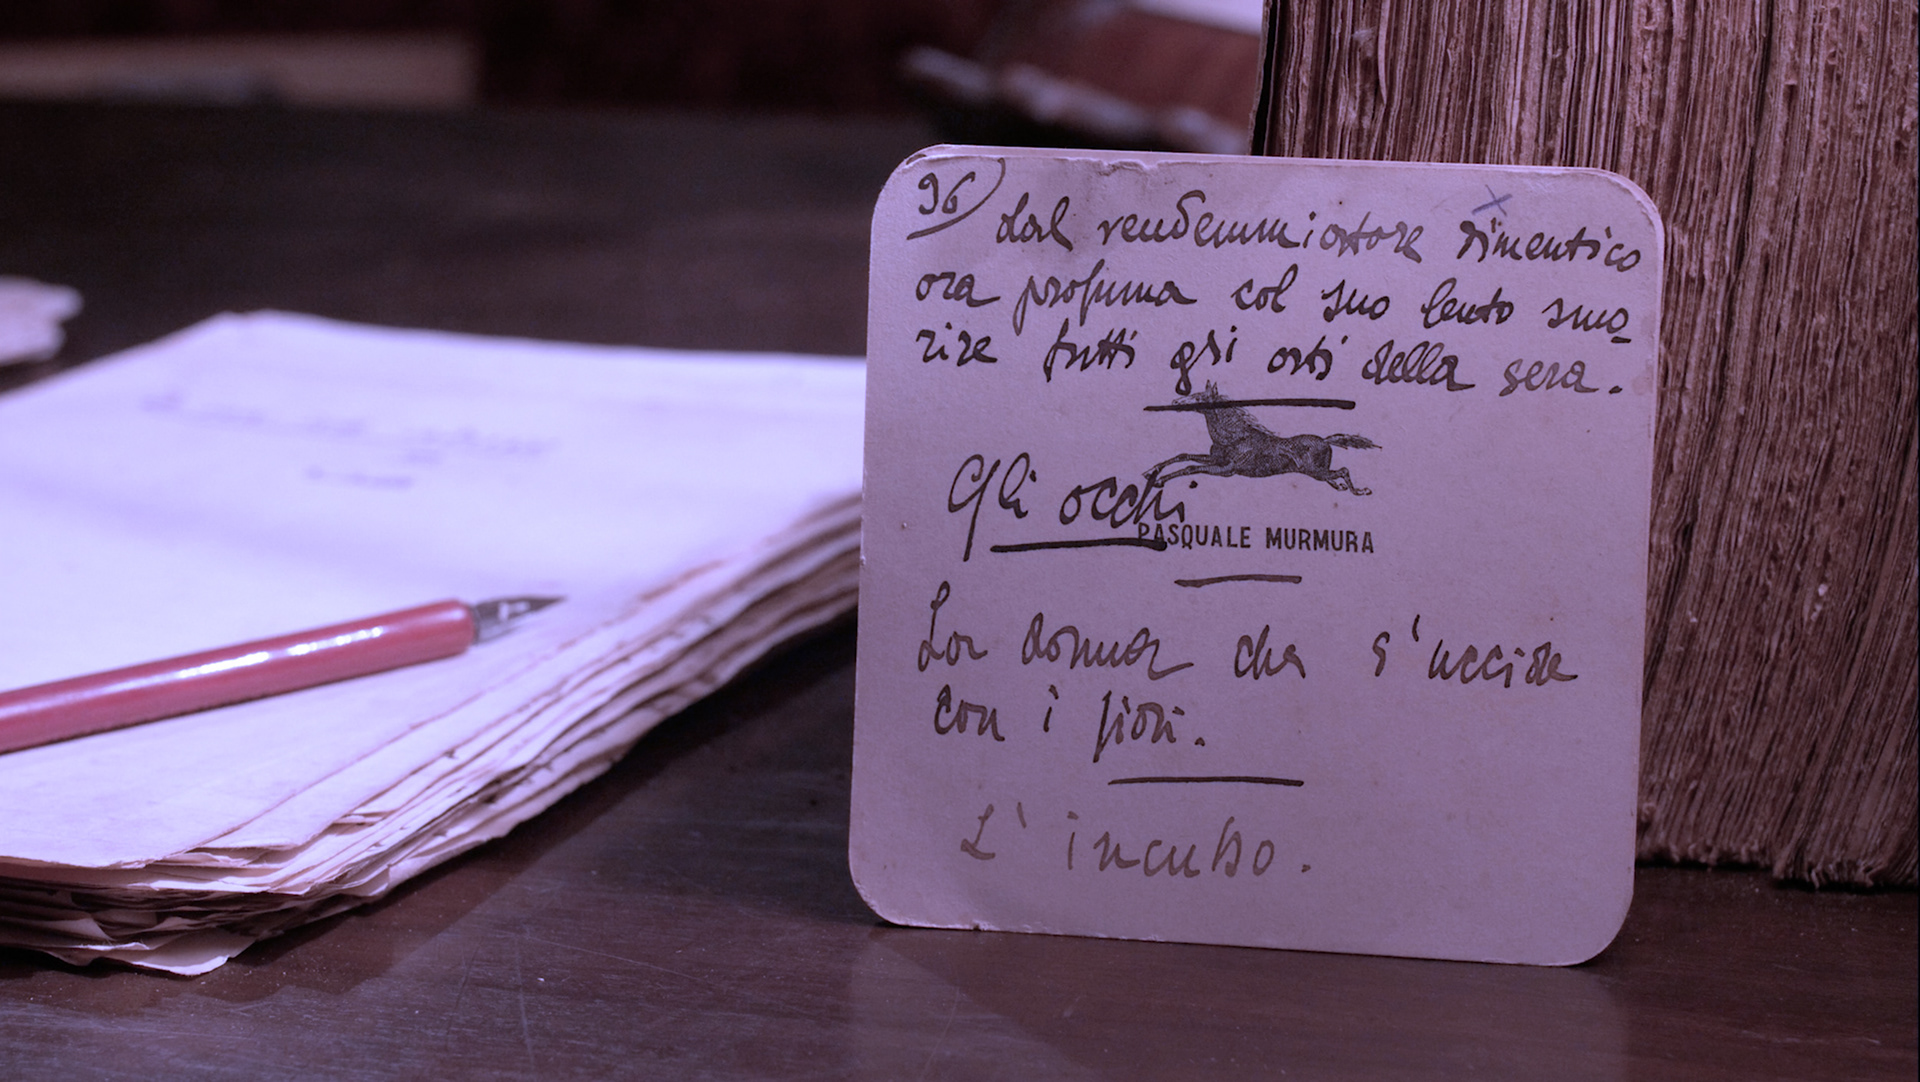 96) dal vendemmiatore dimentico
ora profuma col suo lento smo-
rire tutti gli orti della sera.
Gli occhi
PASQUALE MURMURA
La donna che s'uccide
con i fiori.
L'incubo.